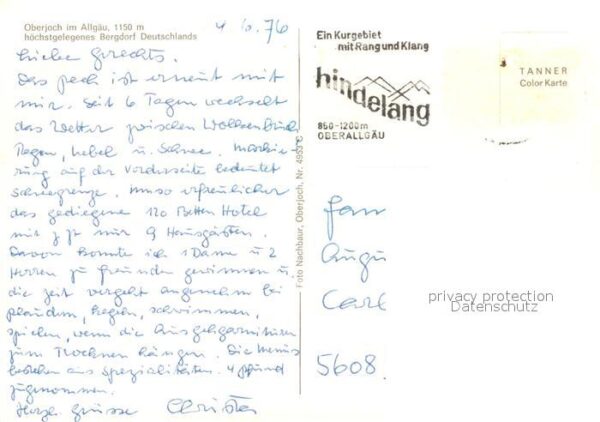 Oberjoch im Allgäu, 1150 m
höchstgelegenes Bergdorf Deutschlands
4 10. 76
Liebe Gerechts.
Das Pech ist erneut mit
mir. Seit 6 Tagen wechselt
das Wetter zwischen Wolkenbruch
Regen, Nebel u. Schnee. Markie-
rung auf der Vorderseite bedeutet
Schneegrenze. Umso erfreulicher
das gediegene 120 Betten Hotel
mit z Zt nur 9 Hausgästen.
Davon konnte ich 1 Dame u 2
Herren zu Freunden gewinnen u.
die Zeit vergeht angenehm bei
plaudern, kegeln, schwimmen,
spielen, wenn die Ausgehgarnituren
zum Trocknen hängen. Die Menus
bestehen aus Spezialitäten. 4 Pfund
zugenommen.
Herzl. Grüsse Christa
Foto Nachbaur, Oberjoch, Nr. 4953 C
Ein Kurgebiet
mit Rang und Klang
hindelang
850-1200m
OBERALLGÄU
TANNER
Color Karte
Fam
Augu
Carl
5608
privacy protection
Datenschutz